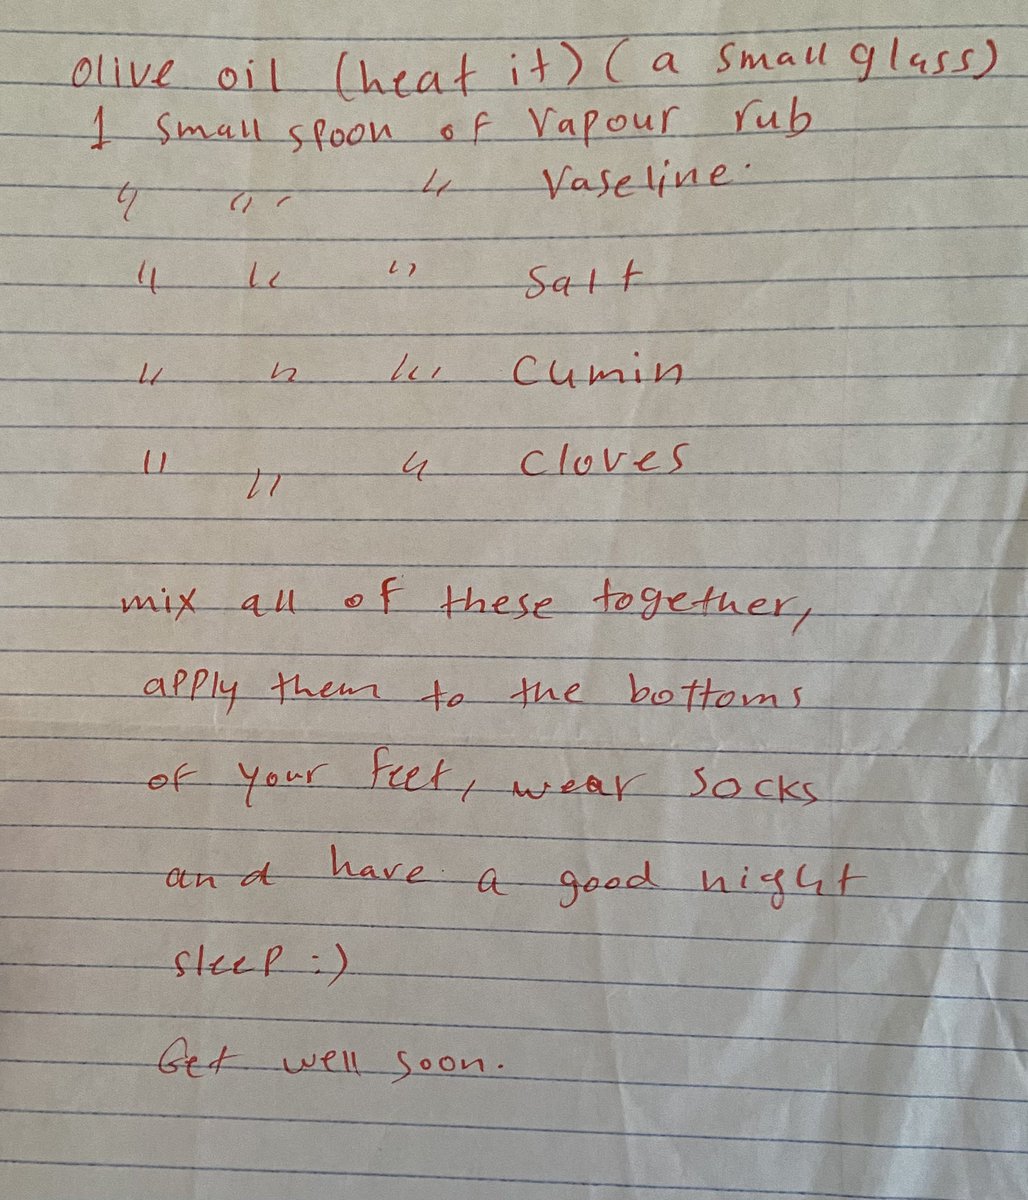 olive oil (heat it) (a small glass)
1 small spoon of vapour rub
" " " Vaseline.
" " " Salt
" " " Cumin
" " " Cloves
mix all of these together,
apply them to the bottoms
of your feet, wear socks
and have a good night
sleep :)
Get well soon.